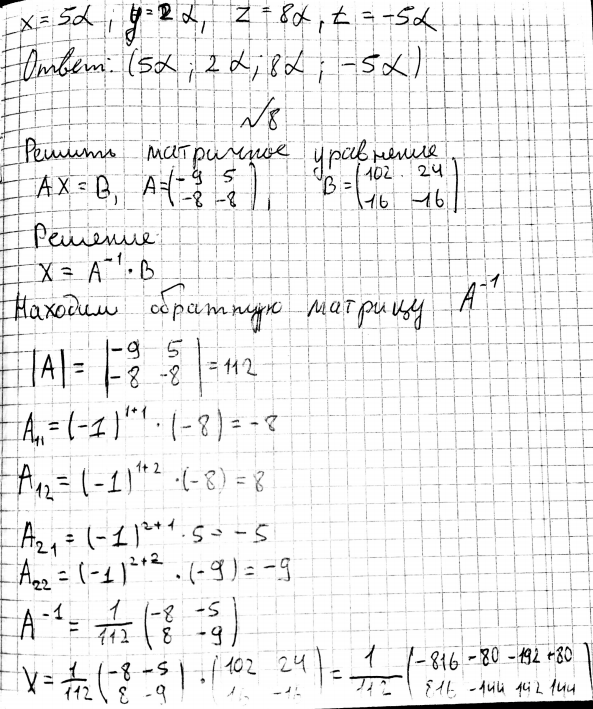 x = 5α ; y = 2α, z = 8α, t = -5α
Ответ: (5α ; 2α ; 8α ; -5α)
№8
Решить матричное уравнение
AX = B, A = (-9 5; -8 -8), B = (102 24; 16 -16)
Решение
X = A⁻¹ · B
Находим обратную матрицу A⁻¹
|A| = |-9 5; -8 -8| = 112
A₁₁ = (-1)¹⁺¹ · (-8) = -8
A₁₂ = (-1)¹⁺² · (-8) = 8
A₂₁ = (-1)²⁺¹ · 5 = -5
A₂₂ = (-1)²⁺² · (-9) = -9
A⁻¹ = 1/112 (-8 -5; 8 -9)
X = 1/112 (-8 -5; 8 -9) · (102 24; 16 -16) = 1/112 (-816 -80 -192 +80; 816 -144 192 144)